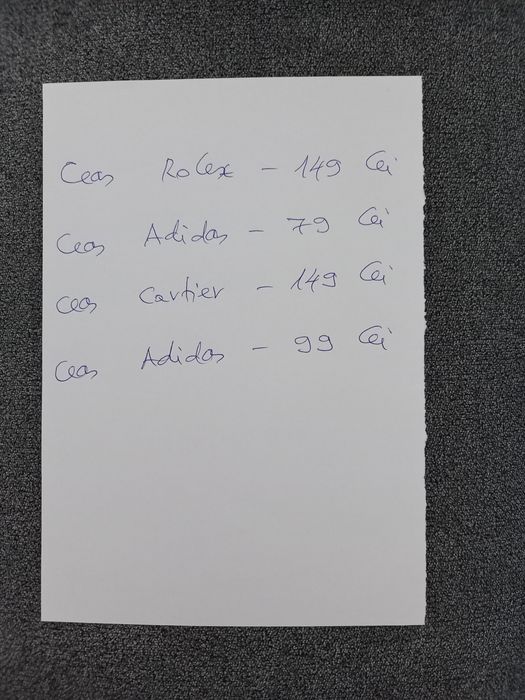 Ceas Rolex - 149 lei
Ceas Adidas - 79 lei
Ceas Cartier - 149 lei
Ceas Adidas - 99 lei